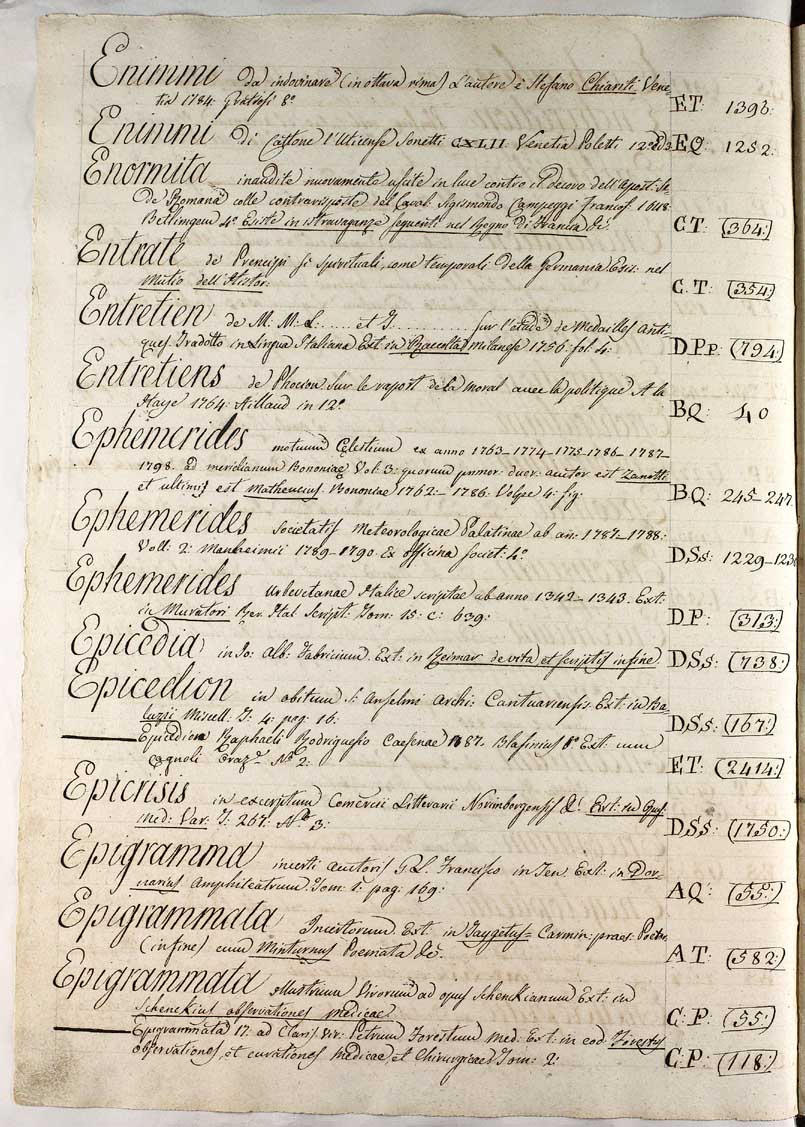 Enimmi da indovinare (in ottava rima) L'autore è Stefano Chiariti Vene
tia 1784: Grätiosi 8°. ET: 1393:
Enimmi Di Cattone l'Uticense Sonetti CXLII Venetia Poletti 12° EQ: 1252:
Enormita inaudite nuovamente uscite in luce contro il Decoro dell'Apost: Se
de Romana colle contravisposte del Caval: Sigismondo Campeggi Francof: 1618:
Beltingeri 4° Existe in istravaganze seguenti nel Regno di Francia &c: C T: (364:)
Entrate de Prencipi si Spirituali, come temporali della Germania. Exis: nel
Mutio dell'Histor: C. T: (354:)
Entretien de M. M: L: ..... et J. ............ sur l'étude de Medailles Anti-
ques Tradotto in Lingua Italiana Ext: in Raccolta Milanese 1756: fol: 4: D.Pp: (794:)
Entretiens de Phocion Sur le raport de la moral avec la politique A la
Haye 1764: Aillaud in 12° BQ: 40
Ephemerides motuum Cęlestium ex anno 1763-1774-1775-1786-1787-
1798. Ed meridianum Bononiæ Vol: 3: quorum primor: duor: autor est Zanotti
et ultimij est Matheucius. Bononiae 1762-1786: Volpe 4: fig: BQ: 245-247
Ephemerides Societatis Meteorologicae Palatinae ab an: 1787-1788:
Voll: 2: Manheimii 1789-1790 Ex officina Societ: 4° DSs: 1229-1230
Ephemerides Urbevetanae Italice scriptae ab anno 1342-1343. Ext:
in Muratori Rer: Ital Script: Tom: 15: c: 639: D.P: (313:)
Epicedia in Jo: Alb: Fabricium. Ext: in Reimar de vita et scriptis in fine DSs: (738:)
Epicedion in obitum S: Anselmi Archi: Cantuariensis Ext: in Ba
luzii Miscell: T: 4: pag: 16: DSs: (167:)
Epicedion Raphaeli Rodriguesio Caesenae 1787. Blasinius 8° Ext: cum
Cagnoli Oraz: N° 2: ET: (2414:)
Epicrisis in excerptum Comercii Litterarii Norimbergensis &c: Ext: in Opus
Med: Var: T: 267: N° 3: DSs: (1750:)
Epigramma incerti autoris G.L. Francisco in Jen Ext: in Dor-
narius Amphiteatrum Tom: 1: pag: 169: AQ: (55:)
Epigrammata Incertorum Ext: in Taygetus Carmin: praes: Poetar:
(in fine) cum Minturnus Poemata &c. A T: (582:)
Epigrammata illustrium Virorum ad opus Schenckianum Ext: in
Schenckius observationes medicae. C: P: (55:)
Epigrammata 17: ad Claris: Vir: Petrum Forestum Med: Ext: in eod: Forestus
observationes, et curationes Medicae, et Chirurgicae Tom: 2: C: P: (118:)